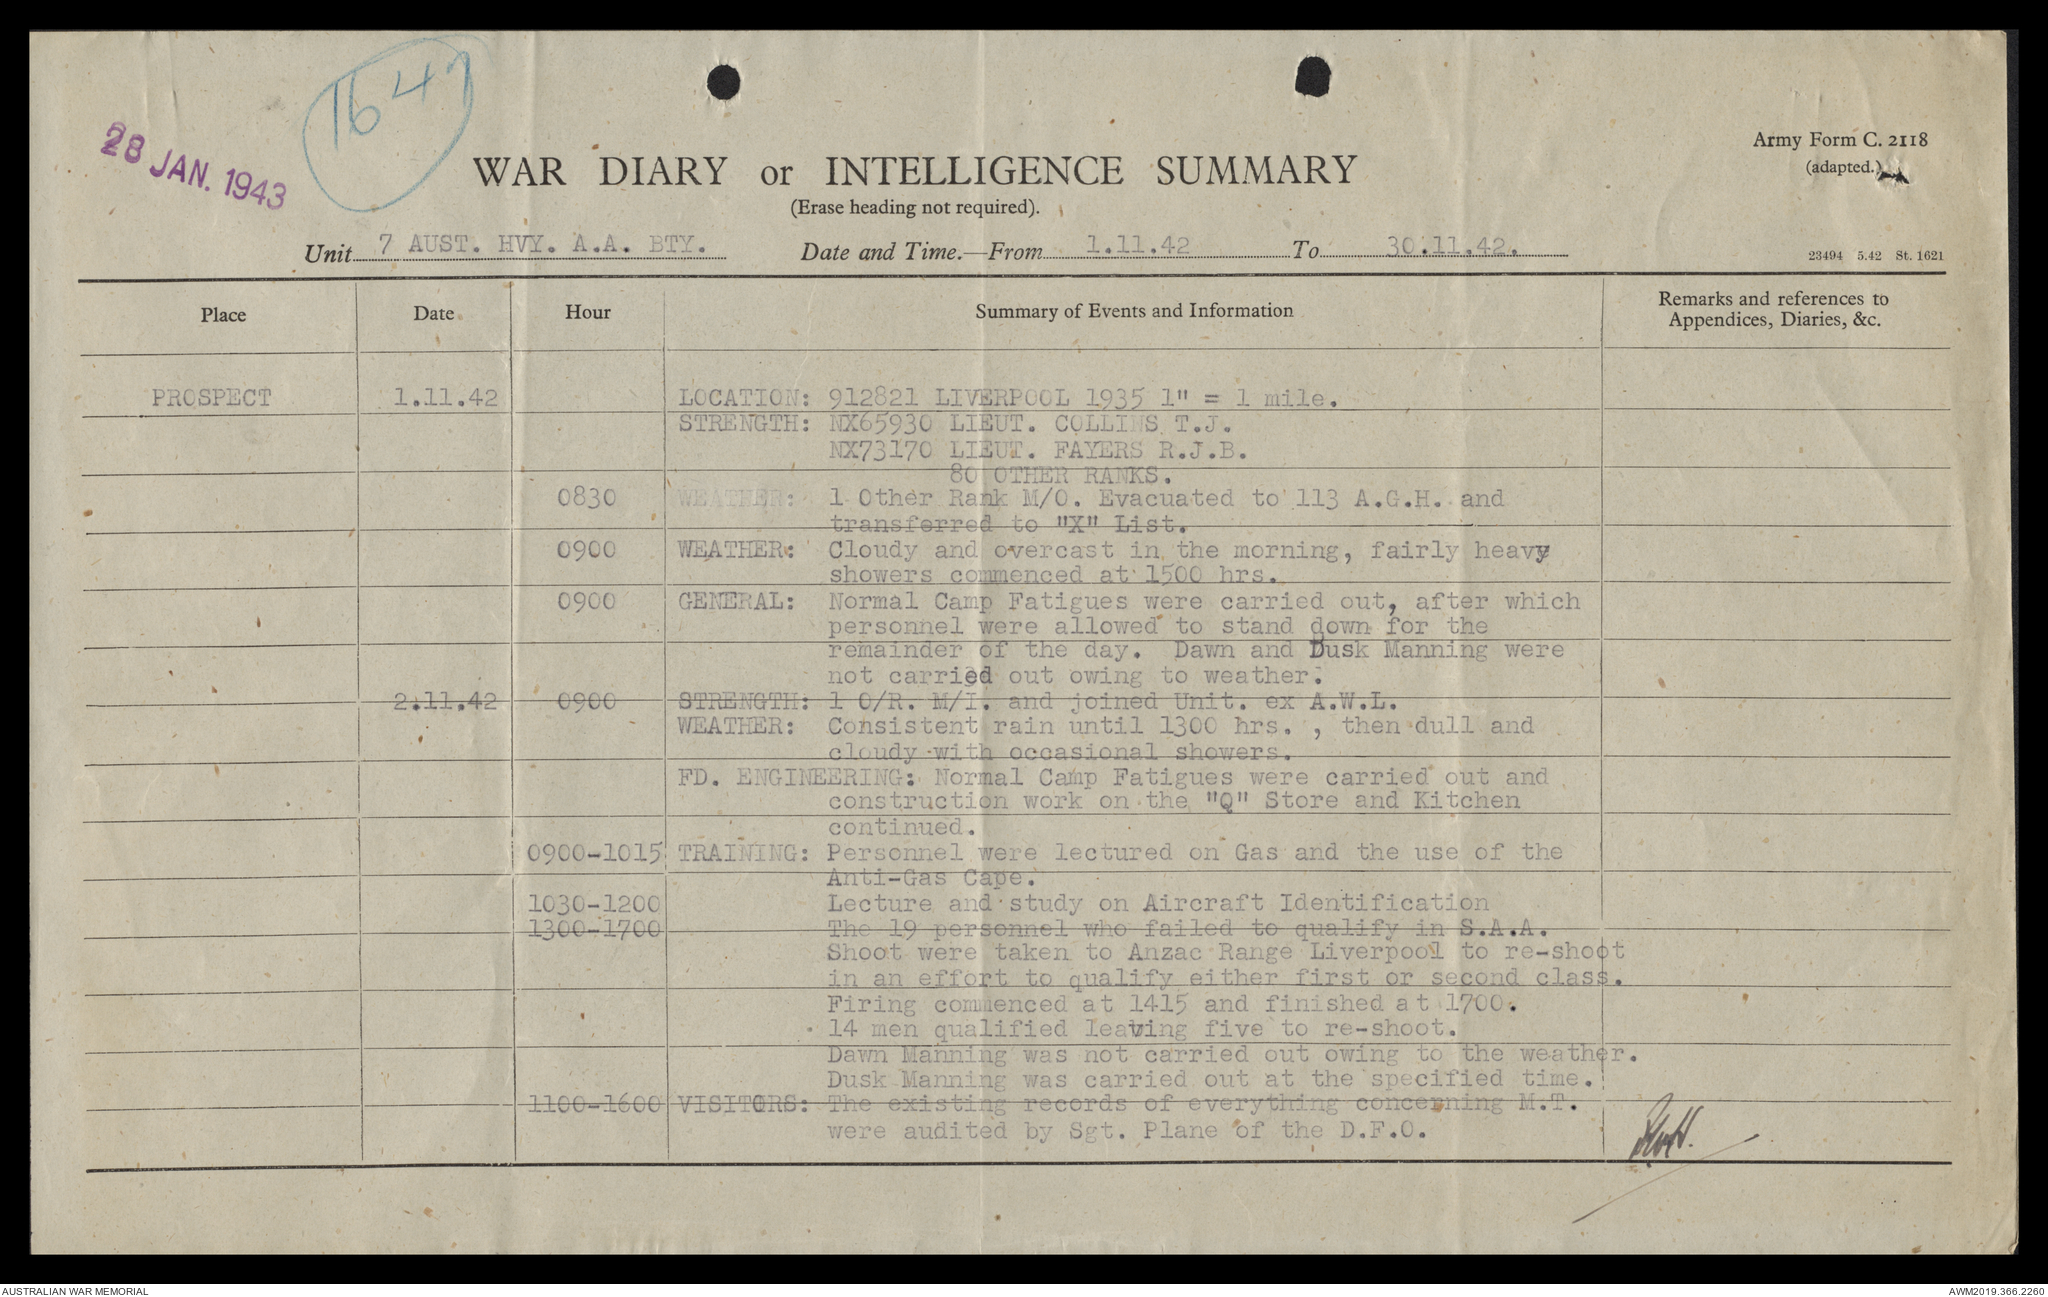 1647
28 JAN. 1943
Army Form C. 2118
(adapted.)
WAR DIARY or INTELLIGENCE SUMMARY
(Erase heading not required).
Unit 7 AUST. HVY. A.A. BTY. Date and Time.—From 1.11.42 To 30.11.42.
23494 5.42 St. 1621
Place Date Hour Summary of Events and Information Remarks and references to
Appendices, Diaries, &c.
PROSPECT 1.11.42 LOCATION: 912821 LIVERPOOL 1935 1" = 1 mile.
STRENGTH: NX65930 LIEUT. COLLINS T.J.
NX73170 LIEUT. FAYERS R.J.B.
80 OTHER RANKS.
0830 WEATHER: 1 Other Rank M/O. Evacuated to 113 A.G.H. and
transferred to "X" List.
0900 WEATHER: Cloudy and overcast in the morning, fairly heavy
showers commenced at 1500 hrs.
0900 GENERAL: Normal Camp Fatigues were carried out, after which
personnel were allowed to stand down for the
remainder of the day. Dawn and Dusk Manning were
not carried out owing to weather.
2.11.42 0900 STRENGTH: 1 O/R. M/I. and joined Unit. ex A.W.L.
WEATHER: Consistent rain until 1300 hrs. , then dull and
cloudy with occasional showers.
FD. ENGINEERING: Normal Camp Fatigues were carried out and
construction work on the "Q" Store and Kitchen
continued.
0900-1015 TRAINING: Personnel were lectured on Gas and the use of the
Anti-Gas Cape.
1030-1200 Lecture and study on Aircraft Identification
1300-1700 The 19 personnel who failed to qualify in S.A.A.
Shoot were taken to Anzac Range Liverpool to re-shoot
in an effort to qualify either first or second class.
Firing commenced at 1415 and finished at 1700.
14 men qualified leaving five to re-shoot.
Dawn Manning was not carried out owing to the weather.
Dusk Manning was carried out at the specified time.
1100-1600 VISITORS: The existing records of everything concerning M.T.
were audited by Sgt. Plane of the D.F.O.
AUSTRALIAN WAR MEMORIAL
AWM2019.366.2260